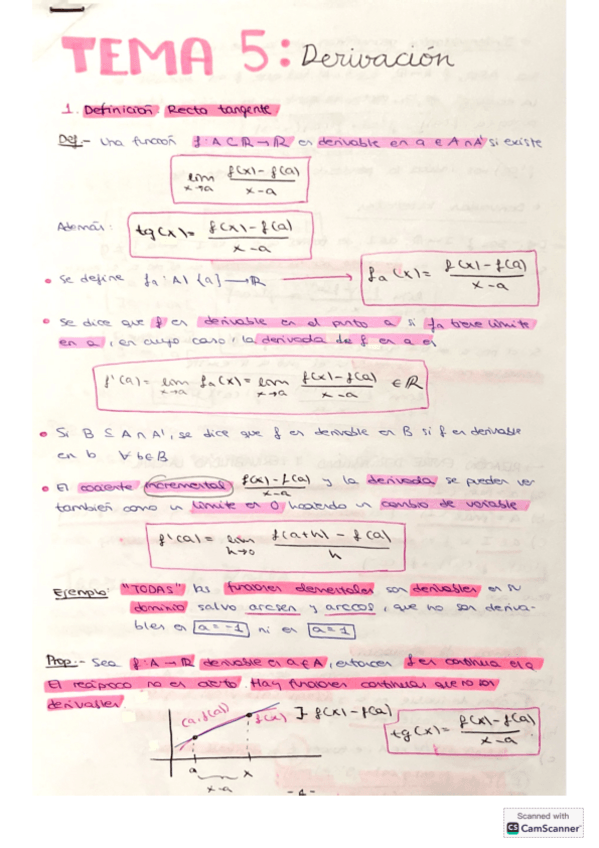 TEMA 5: Derivación
1. Definición Recta tangente
Def.- Una función f: A ⊂ ℝ → ℝ es derivable en a ∈ A ∩ A' si existe
lim x→a f(x) - f(a) / x - a
Además: tg(x) = f(x) - f(a) / x - a
• Se define fa: A \ {a} → ℝ → fa(x) = f(x) - f(a) / x - a
• Se dice que f es derivable en el punto a si fa tiene límite
en a, en cuyo caso, la derivada de f en a es
f'(a) = lim x→a fa(x) = lim x→a f(x) - f(a) / x - a ∈ ℝ
• Si B ⊆ A ∩ A', se dice que f es derivable en B si f es derivable
en b ∀ b ∈ B
• El cociente incremental f(x) - f(a) / x - a y la derivada se pueden ver
también como un límite en 0 haciendo un cambio de variable
f'(a) = lim h→0 f(a+h) - f(a) / h
Ejemplo: "TODAS" las funciones elementales son derivables en su
dominio salvo arcsen y arccos, que no son deriva-
bles en a = -1 ni en a = 1
Prop.- Sea f: A → ℝ derivable en a ∈ A, entonces f es continua en a
El recíproco no es cierto. Hay funciones continuas que no son
derivables
(a, f(a)) f(x) ]- f(x) - f(a)
tg(x) = f(x) - f(a) / x - a
a x
x - a
-1-
Scanned with
CS CamScanner